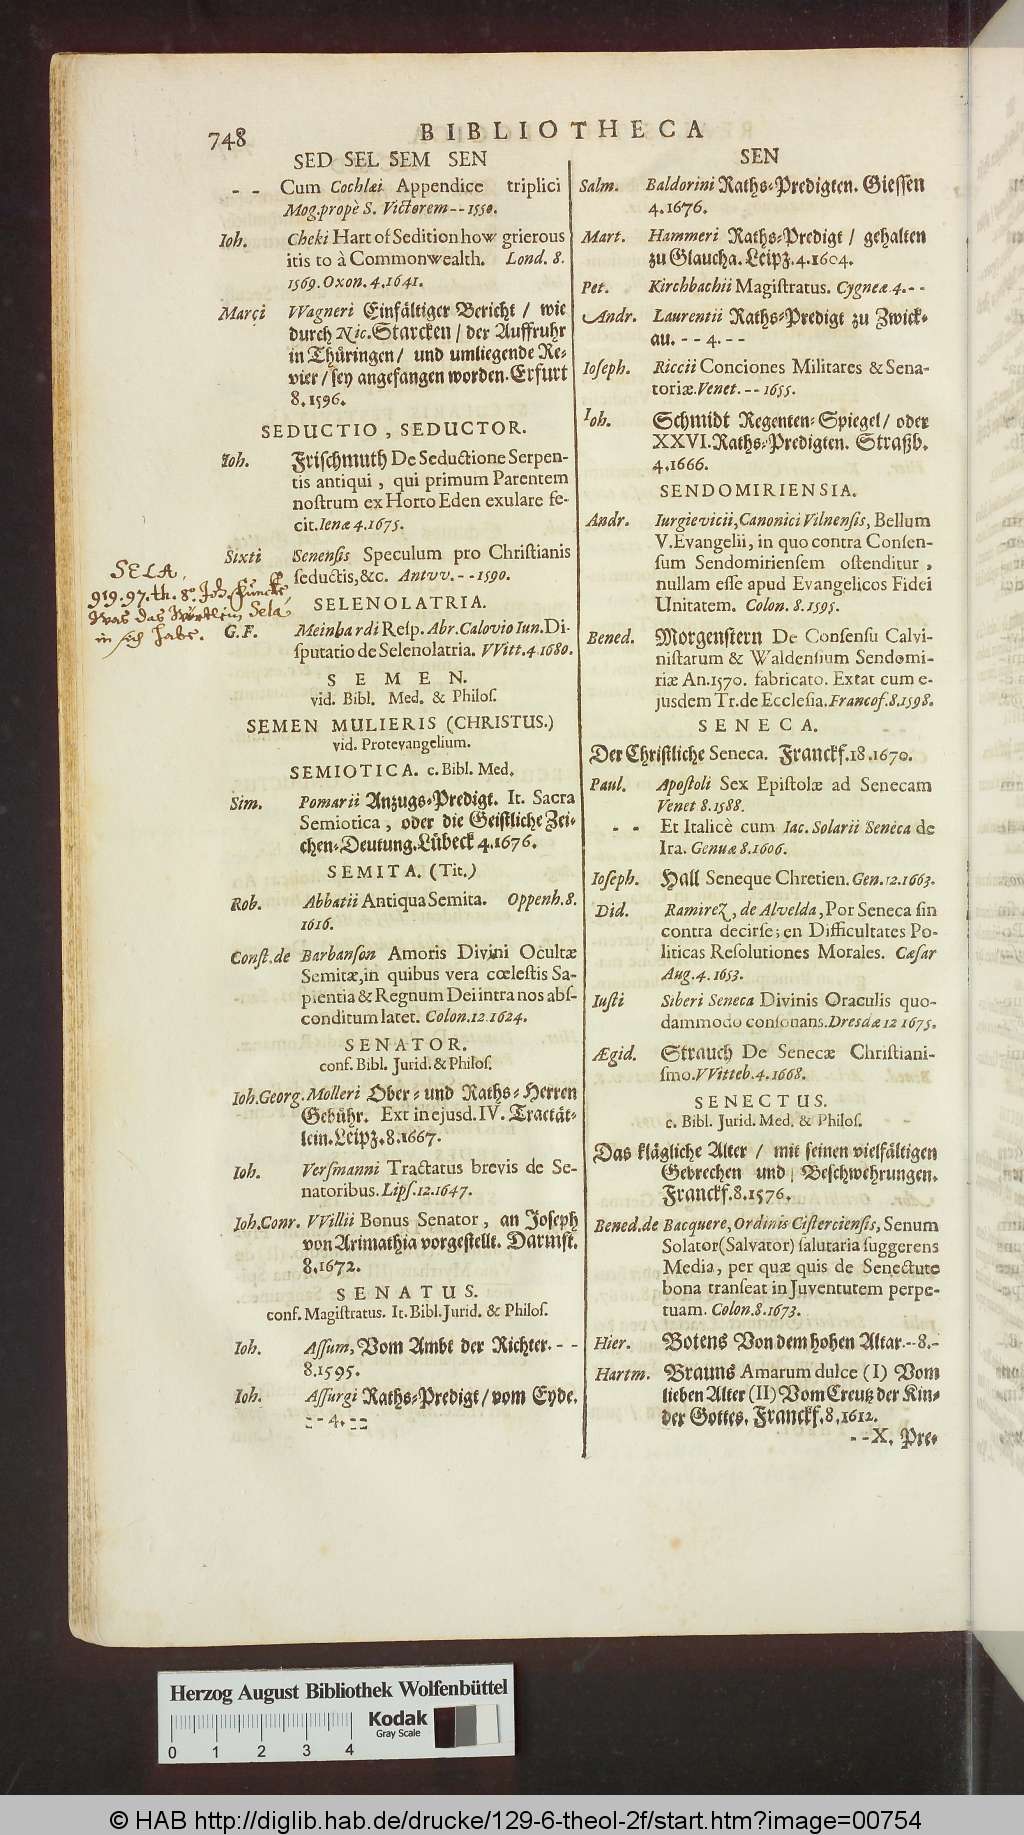 748
BIBLIOTHECA
SED SEL SEM SEN
-- Cum Cochlæi Appendice triplici
Mog. propè S. Victorem -- 1550.
Ioh. Cheki Hart of Sedition how grierous
itis to à Commonwealth. Lond. 8.
1569. Oxon. 4. 1641.
Marci Wagneri Einfältiger Bericht / wie
durch Nic. Starcken / der Auffruhr
in Thüringen / und umliegende Re-
vier / sey angefangen worden. Erfurt
8. 1596.
SEDUCTIO, SEDUCTOR.
Ioh. Frischmuth De Seductione Serpen-
tis antiqui, qui primum Parentem
nostrum ex Horto Eden exulare fe-
cit. Ienæ 4. 1675.
Sixti Senensis Speculum pro Christianis
seductis, &c. Antvv. -- 1590.
SELENOLATRIA.
G. F. Meinhardi Resp. Abr. Calovio Iun. Di-
sputatio de Selenolatria. VVitt. 4 1680.
SEMEN.
vid. Bibl. Med. & Philos.
SEMEN MULIERIS (CHRISTUS.)
vid. Protevangelium.
SEMIOTICA. c. Bibl. Med.
Sim. Pomarii Anzugs-Predigt. It. Sacra
Semiotica, oder die Geistliche Zei-
chen-Deutung. Lübeck 4. 1676.
SEMITA. (Tit.)
Rob. Abbatii Antiqua Semita. Oppenh. 8.
1616.
Const. de Barbanson Amoris Divini Ocultæ
Semitæ, in quibus vera cœlestis Sa-
pientia & Regnum Dei intra nos abs-
conditum latet. Colon. 12. 1624.
SENATOR.
conf. Bibl. Jurid. & Philos.
Ioh. Georg. Molleri Ober- und Raths-Herren
Gebühr. Ext in ejusd. IV. Tractät-
lein. Leipz. 8. 1667.
Ioh. Versmanni Tractatus brevis de Se-
natoribus. Lips. 12. 1647.
Ioh. Conr. VVillii Bonus Senator, an Joseph
von Arimathia vorgestellt. Darmst.
8. 1672.
SENATUS.
conf. Magistratus. It. Bibl. Jurid. & Philos.
Ioh. Assum, Vom Ambt der Richter. --
8. 1595.
Ioh. Assurgi Raths-Predigt / vom Eyde.
-- 4. --
SELA.
919. 97. th. 8° Joh. Funcke,
Was das Wörtlein Sela
in sich habe.
SEN
Salm. Baldorini Raths-Predigten. Giessen
4. 1676.
Mart. Hammeri Raths-Predigt / gehalten
zu Glaucha. Leipz. 4. 1604.
Pet. Kirchbachii Magistratus. Cygneæ 4. --
Andr. Laurentii Raths-Predigt zu Zwick-
au. -- 4. --
Ioseph. Riccii Conciones Militares & Sena-
toriæ. Venet. -- 1655.
Ioh. Schmidt Regenten-Spiegel / oder
XXVI. Raths-Predigten. Straßb.
4. 1666.
SENDOMIRIENSIA.
Andr. Iurgievicii, Canonici Vilnensis, Bellum
V. Evangelii, in quo contra Consen-
sum Sendomiriensem ostenditur,
nullam esse apud Evangelicos Fidei
Unitatem. Colon. 8. 1595.
Bened. Morgenstern De Consensu Calvi-
nistarum & Waldensium Sendomi-
riæ An. 1570. fabricato. Extat cum e-
jusdem Tr. de Ecclesia. Francof. 8. 1598.
SENECA.
Der Christliche Seneca. Franckf. 18. 1670.
Paul. Apostoli Sex Epistolæ ad Senecam
Venet 8. 1588.
-- Et Italicè cum Iac. Solarii Seneca de
Ira. Genuæ 8. 1606.
Ioseph. Hall Seneque Chretien. Gen. 12. 1663.
Did. Ramirez, de Alvelda, Por Seneca sin
contra decirse; en Difficultates Po-
liticas Resolutiones Morales. Cæsar
Aug. 4. 1653.
Iusti Siberi Seneca Divinis Oraculis quo-
dammodo consonans. Dresdæ 12 1675.
Ægid. Strauch De Senecæ Christiani-
smo. VVitteb. 4. 1668.
SENECTUS.
c. Bibl. Jurid. Med. & Philos.
Das klägliche Alter / mit seinen vielfältigen
Gebrechen und Beschwehrungen.
Franckf. 8. 1576.
Bened. de Bacquere, Ordinis Cisterciensis, Senum
Solator (Salvator) salutaria suggerens
Media, per quæ quis de Senectute
bona transeat in Juventutem perpe-
tuam. Colon. 8. 1673.
Hier. Botens Von dem hohen Altar. -- 8. -
Hartm. Brauns Amarum dulce (I) Vom
lieben Alter (II) Vom Creutz der Kin-
der Gottes. Franckf. 8. 1612.
-- X. Pre-
Herzog August Bibliothek Wolfenbüttel
Kodak
Gray Scale
0 1 2 3 4
© HAB http://diglib.hab.de/drucke/129-6-theol-2f/start.htm?image=00754